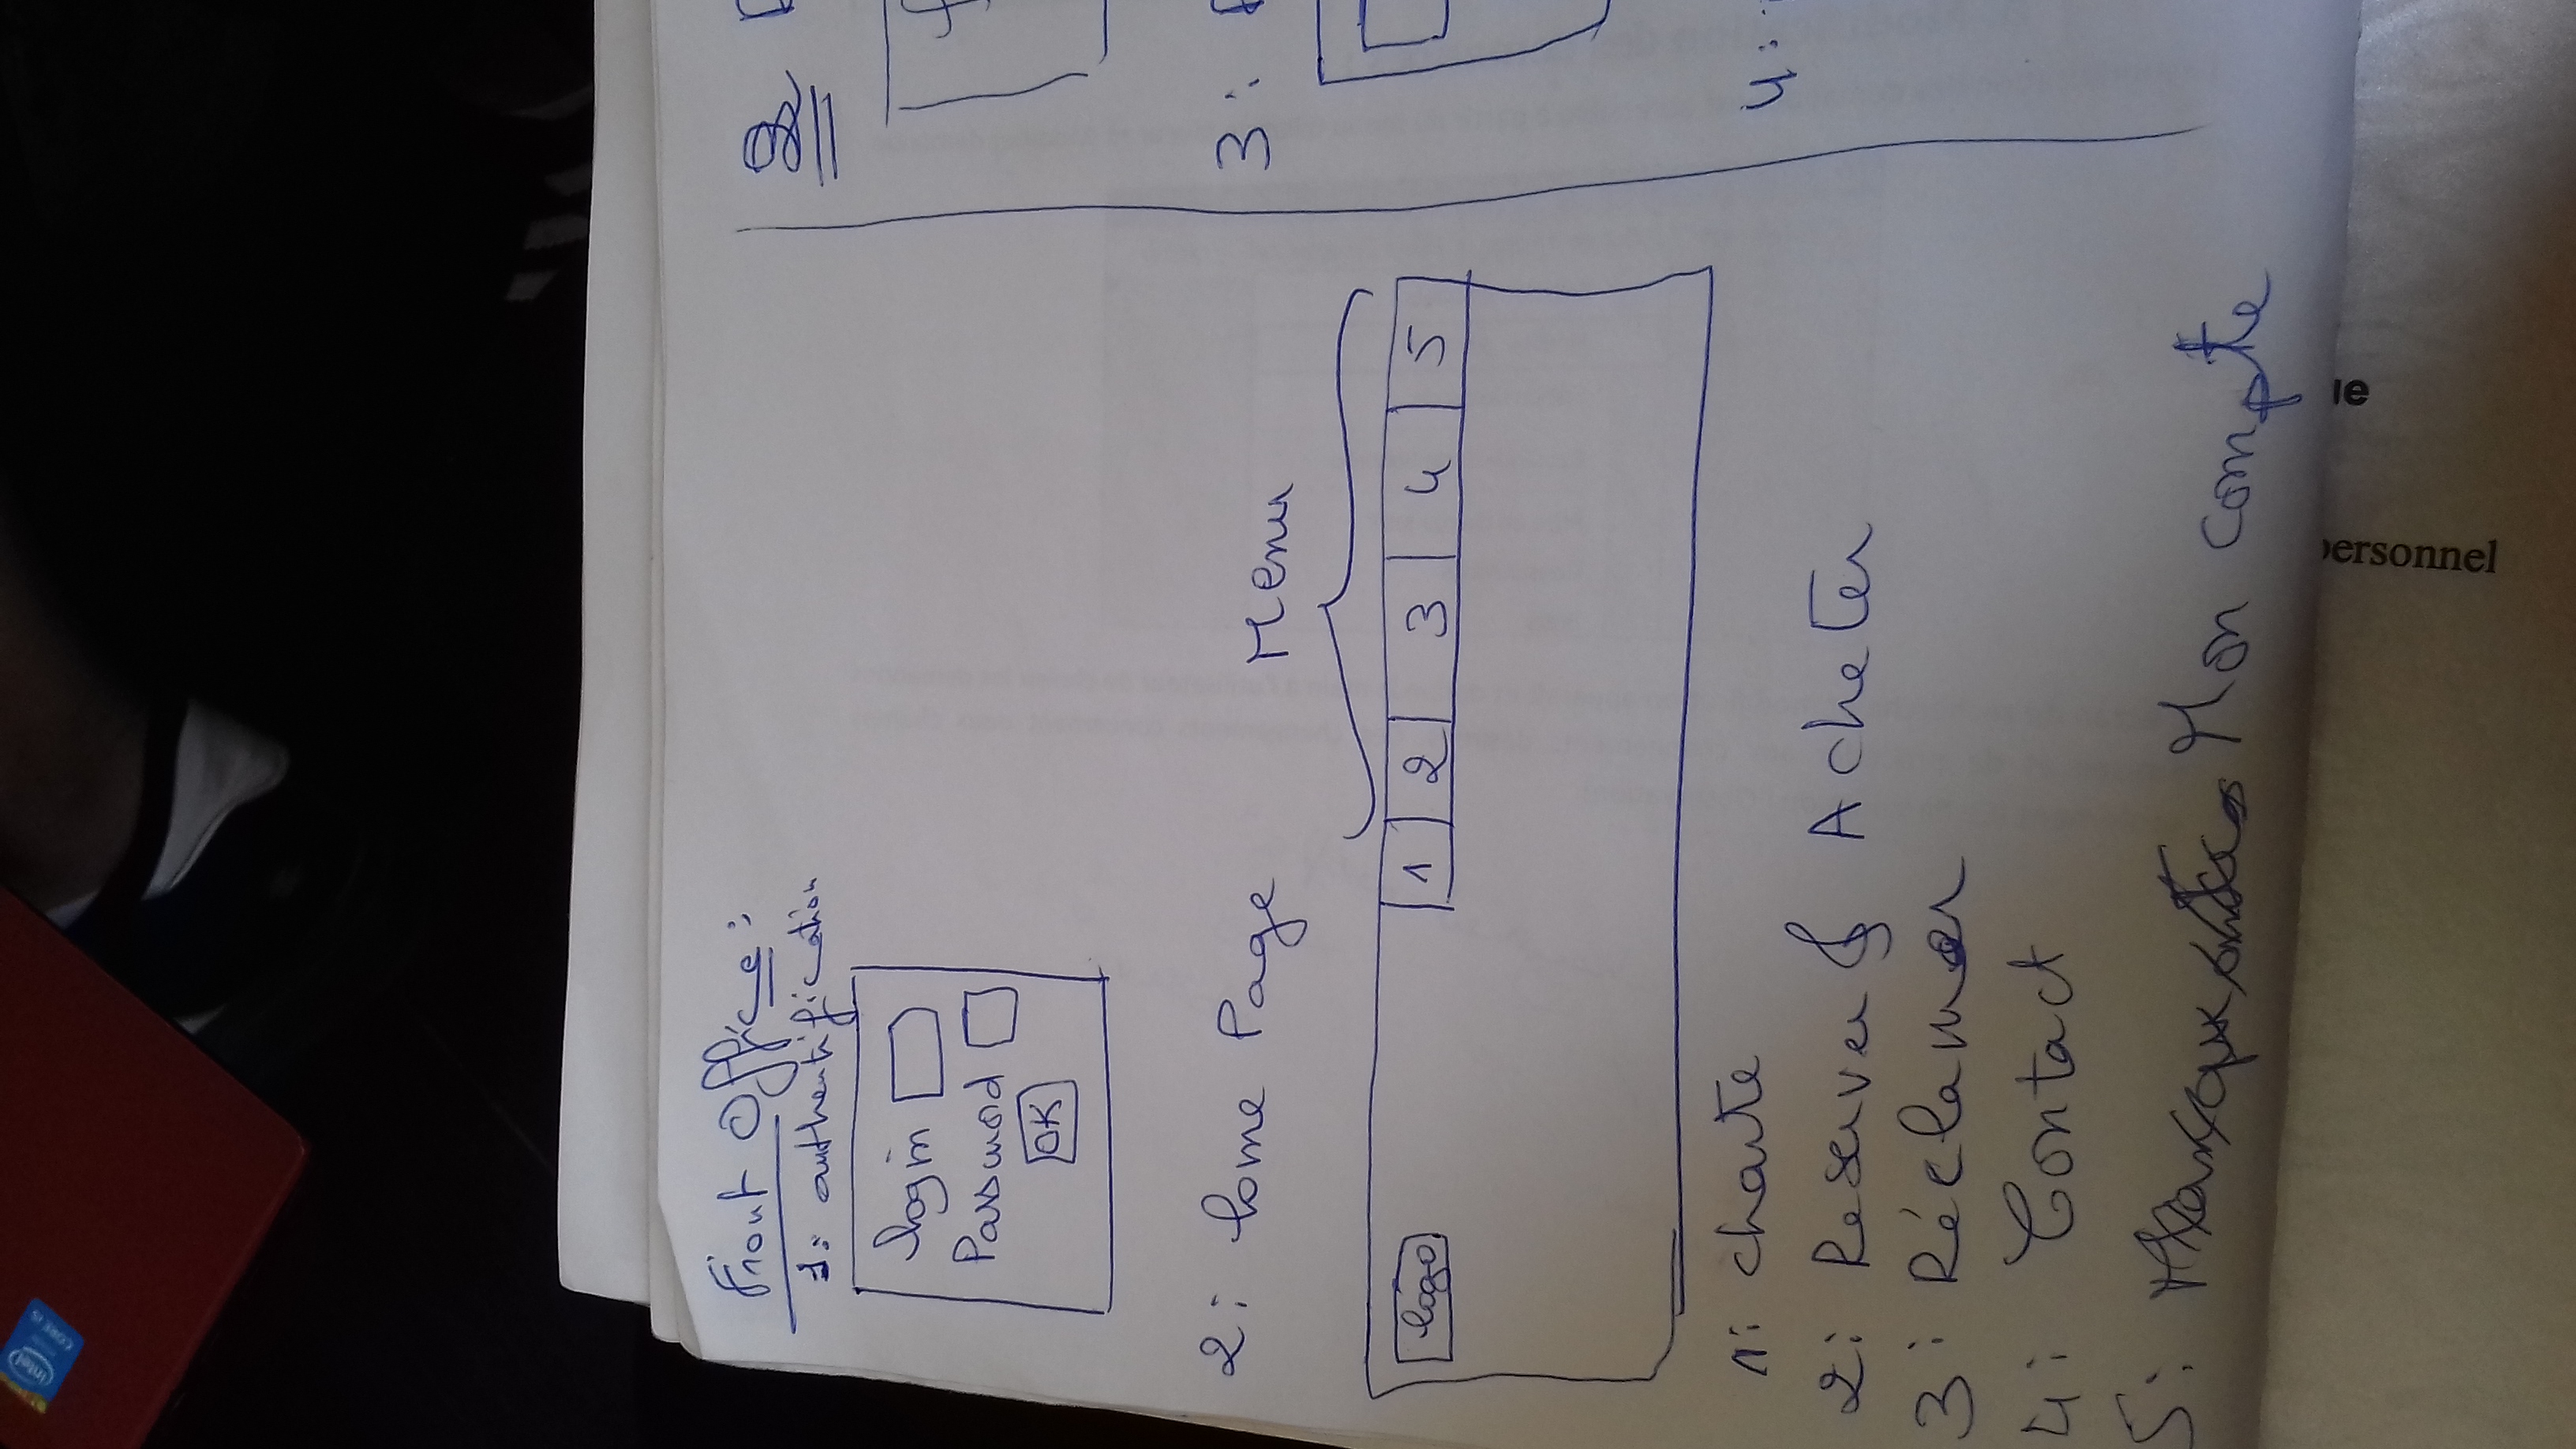 intel
CORE i5
Front Office :
1: authentification
login
Password
OK
2: home Page
Menu
logo 1 2 3 4 5
1: charte
2: Reserver & Acheter
3: Réclamer
4: Contact
5: Mon compte
2
3:
4:
le
personnel